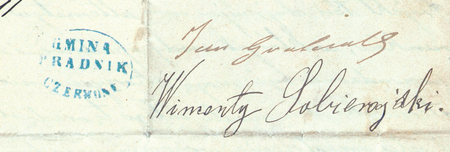 GMINA
PRADNIK
CZERWONY
Jan
Wincenty Sobierajski.